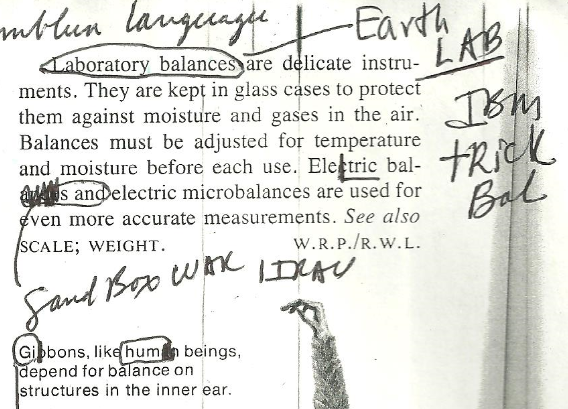 language Earth
LAB
Laboratory balances are delicate instru-
ments. They are kept in glass cases to protect
them against moisture and gases in the air.
Balances must be adjusted for temperature
and moisture before each use. Electric bal-
s and electric microbalances are used for
even more accurate measurements. See also
SCALE; WEIGHT. W.R.P./R.W.L.
IBM
tRick
Bal
Sand Box WAR
Gibbons, like human beings,
depend for balance on
structures in the inner ear.